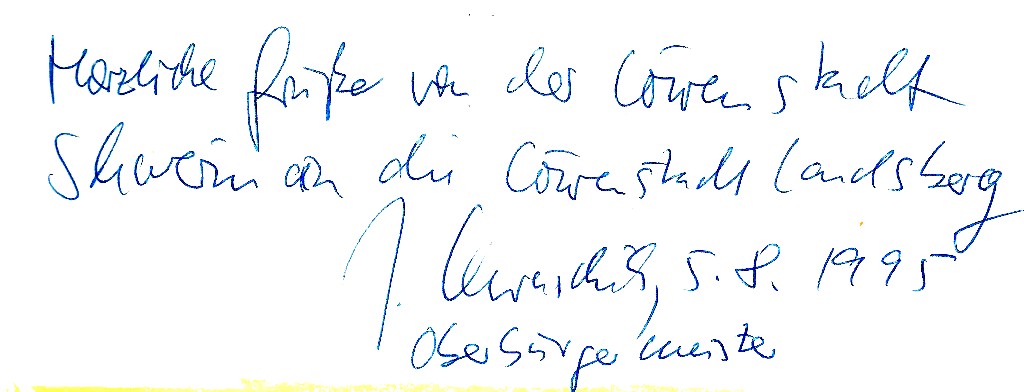 Herzliche Grüße von der Löwenstadt
Schwerin an die Löwenstadt Landsberg
J. Kwaschik, 5.8.1995
Oberbürgermeister